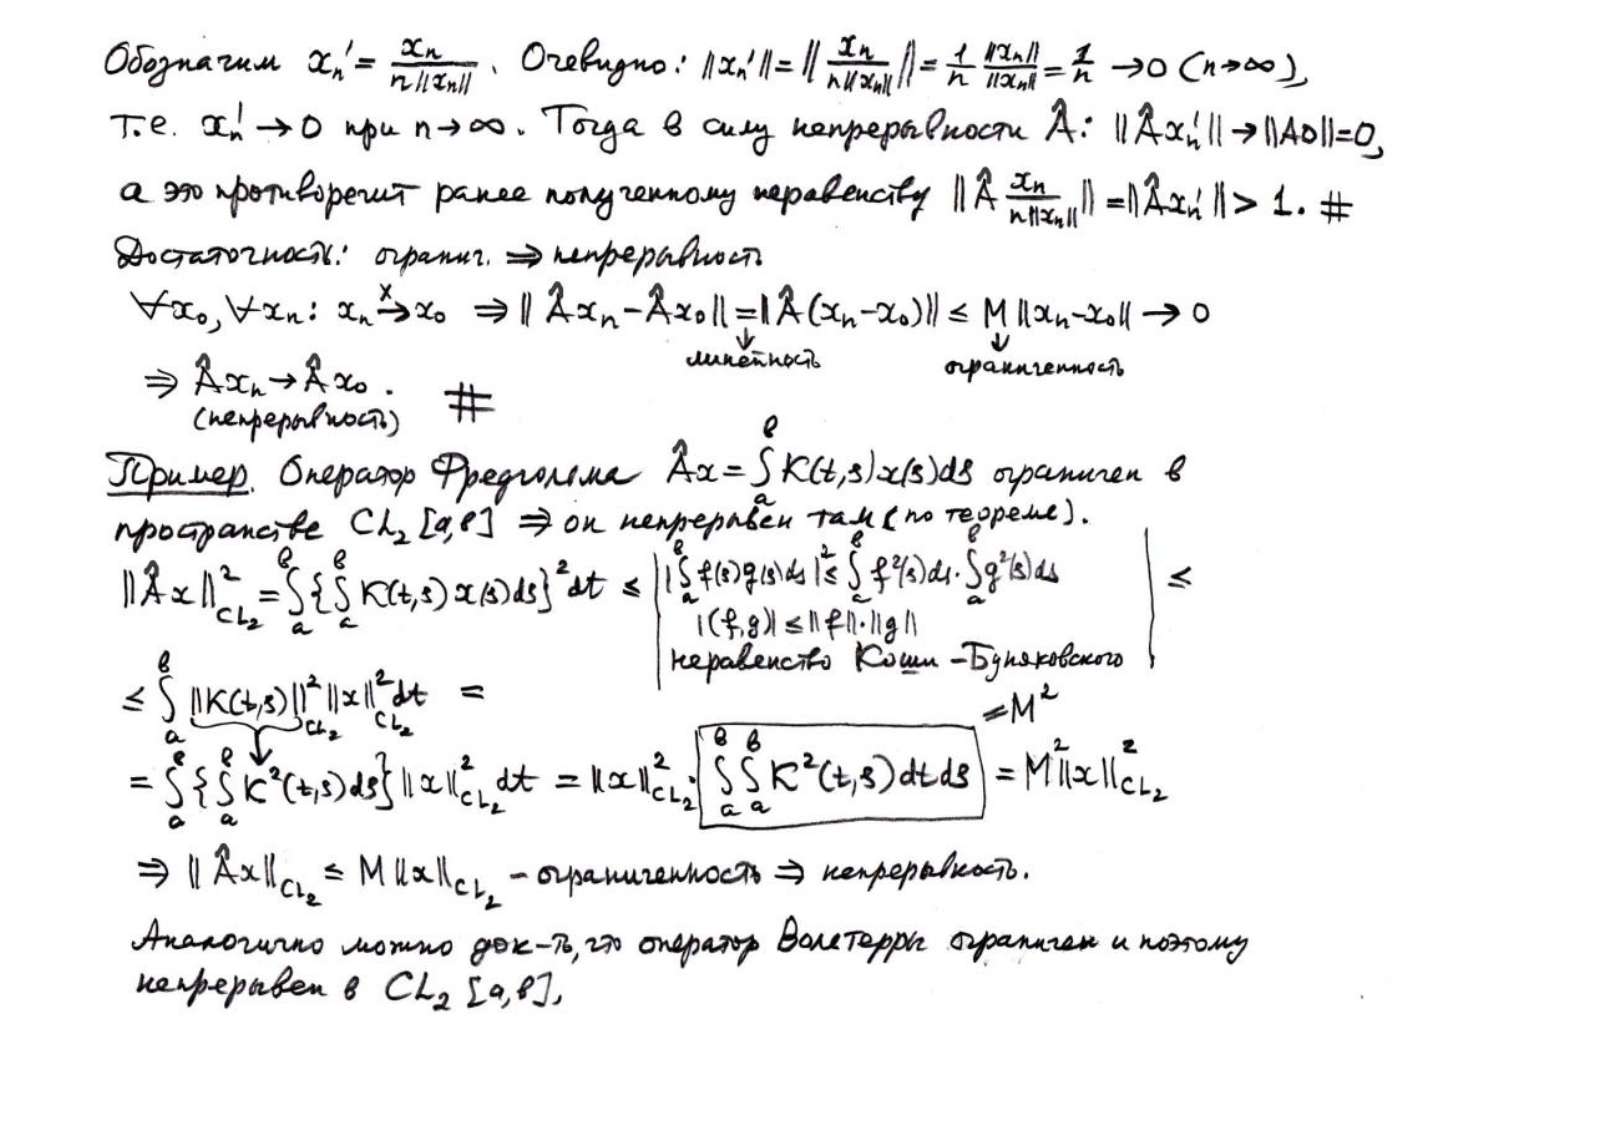 Обозначим xₙ′ = xₙ / (n‖xₙ‖). Очевидно: ‖xₙ′‖ = ‖xₙ / (n‖xₙ‖)‖ = 1/n ‖xₙ‖/‖xₙ‖ = 1/n → 0 (n→∞),
т.е. xₙ′ → 0 при n→∞. Тогда в силу непрерывности Â: ‖Âxₙ′‖ → ‖A0‖=0,
а это противоречит ранее полученному неравенству ‖Â xₙ / (n‖xₙ‖)‖ = ‖Âxₙ′‖ > 1. #
Достаточность: огранич. ⇒ непрерывность
∀x₀, ∀xₙ: xₙ →ˣ x₀ ⇒ ‖Âxₙ − Âx₀‖ = ‖Â(xₙ−x₀)‖ ≤ M‖xₙ−x₀‖ → 0
↓ линейность ↓ ограниченность
⇒ Âxₙ → Âx₀. #
(непрерывность)
Пример. Оператор Фредгольма Âx = ∫ₐᵇ K(t,s)x(s)ds ограничен в
пространстве CL₂[a,b] ⇒ он непрерывен там (по теореме).
‖Âx‖²_CL₂ = ∫ₐᵇ{∫ₐᵇ K(t,s)x(s)ds}²dt ≤ | |∫ₐᵇ f(s)g(s)ds|² ≤ ∫ₐᵇ f²(s)ds·∫ₐᵇ g²(s)ds | ≤
|(f,g)| ≤ ‖f‖·‖g‖
неравенство Коши-Буняковского
≤ ∫ₐᵇ ‖K(t,s)‖²_CL₂ ‖x‖²_CL₂ dt =
= M²
= ∫ₐᵇ{∫ₐᵇ K²(t,s)ds}‖x‖²_CL₂ dt = ‖x‖²_CL₂ · ∫ₐᵇ∫ₐᵇ K²(t,s)dtds = M²‖x‖²_CL₂
⇒ ‖Âx‖_CL₂ ≤ M‖x‖_CL₂ – ограниченность ⇒ непрерывность.
Аналогично можно док-ть, что оператор Вольтерры ограничен и поэтому
непрерывен в CL₂[a,b],